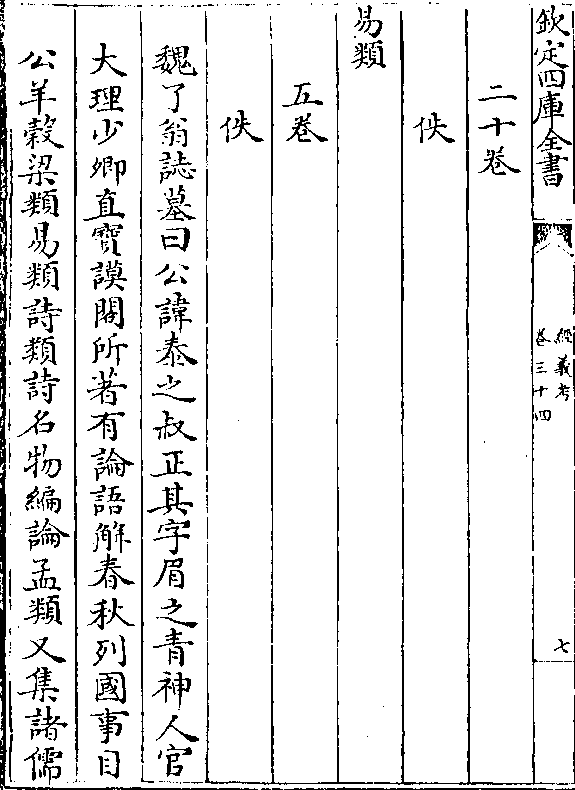 欽定四庫全書
經義考
卷三十四
七
二十卷
佚
易類
五卷
佚
魏了翁誌墓曰公諱泰之叔正其字眉之青神人官
大理少卿直寶謨閣所著有論語解春秋列國事目
公羊穀梁類易類詩類詩名物編論孟類又集諸儒